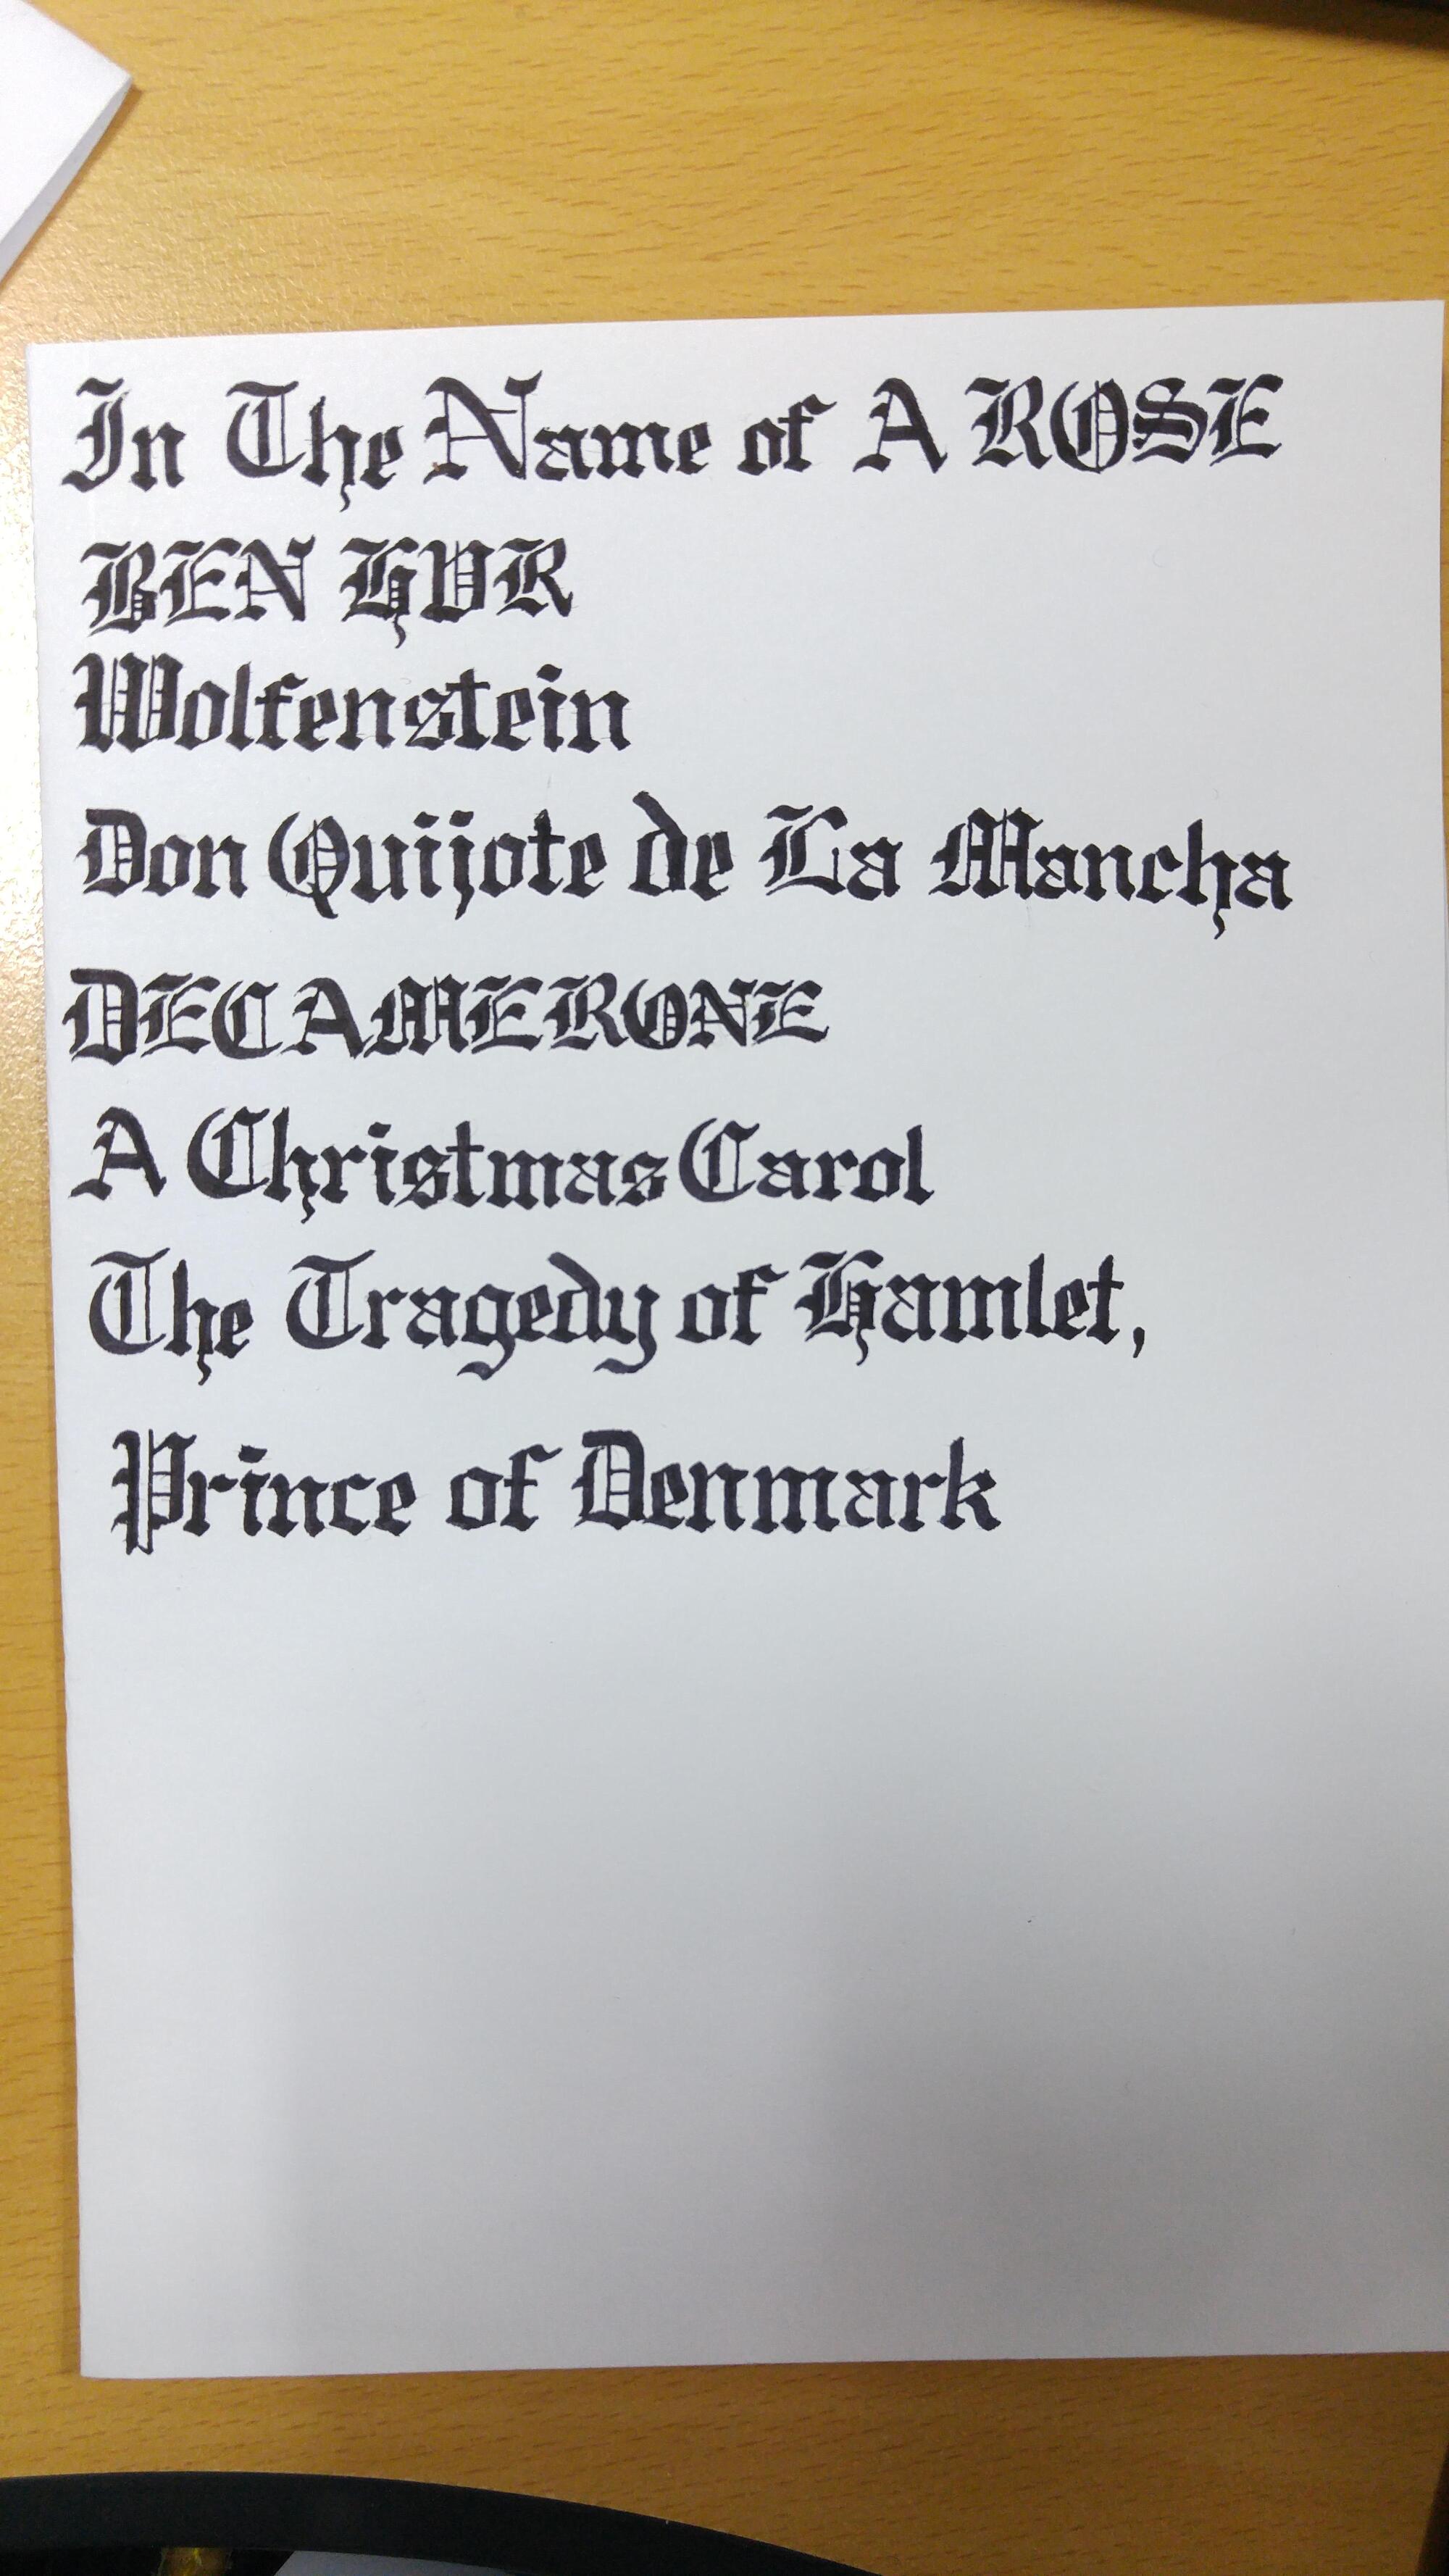 In The Name of A ROSE
BEN HUR
Wolfenstein
Don Quijote de La Mancha
DECAMERONE
A Christmas Carol
The Tragedy of Hamlet,
Prince of Denmark